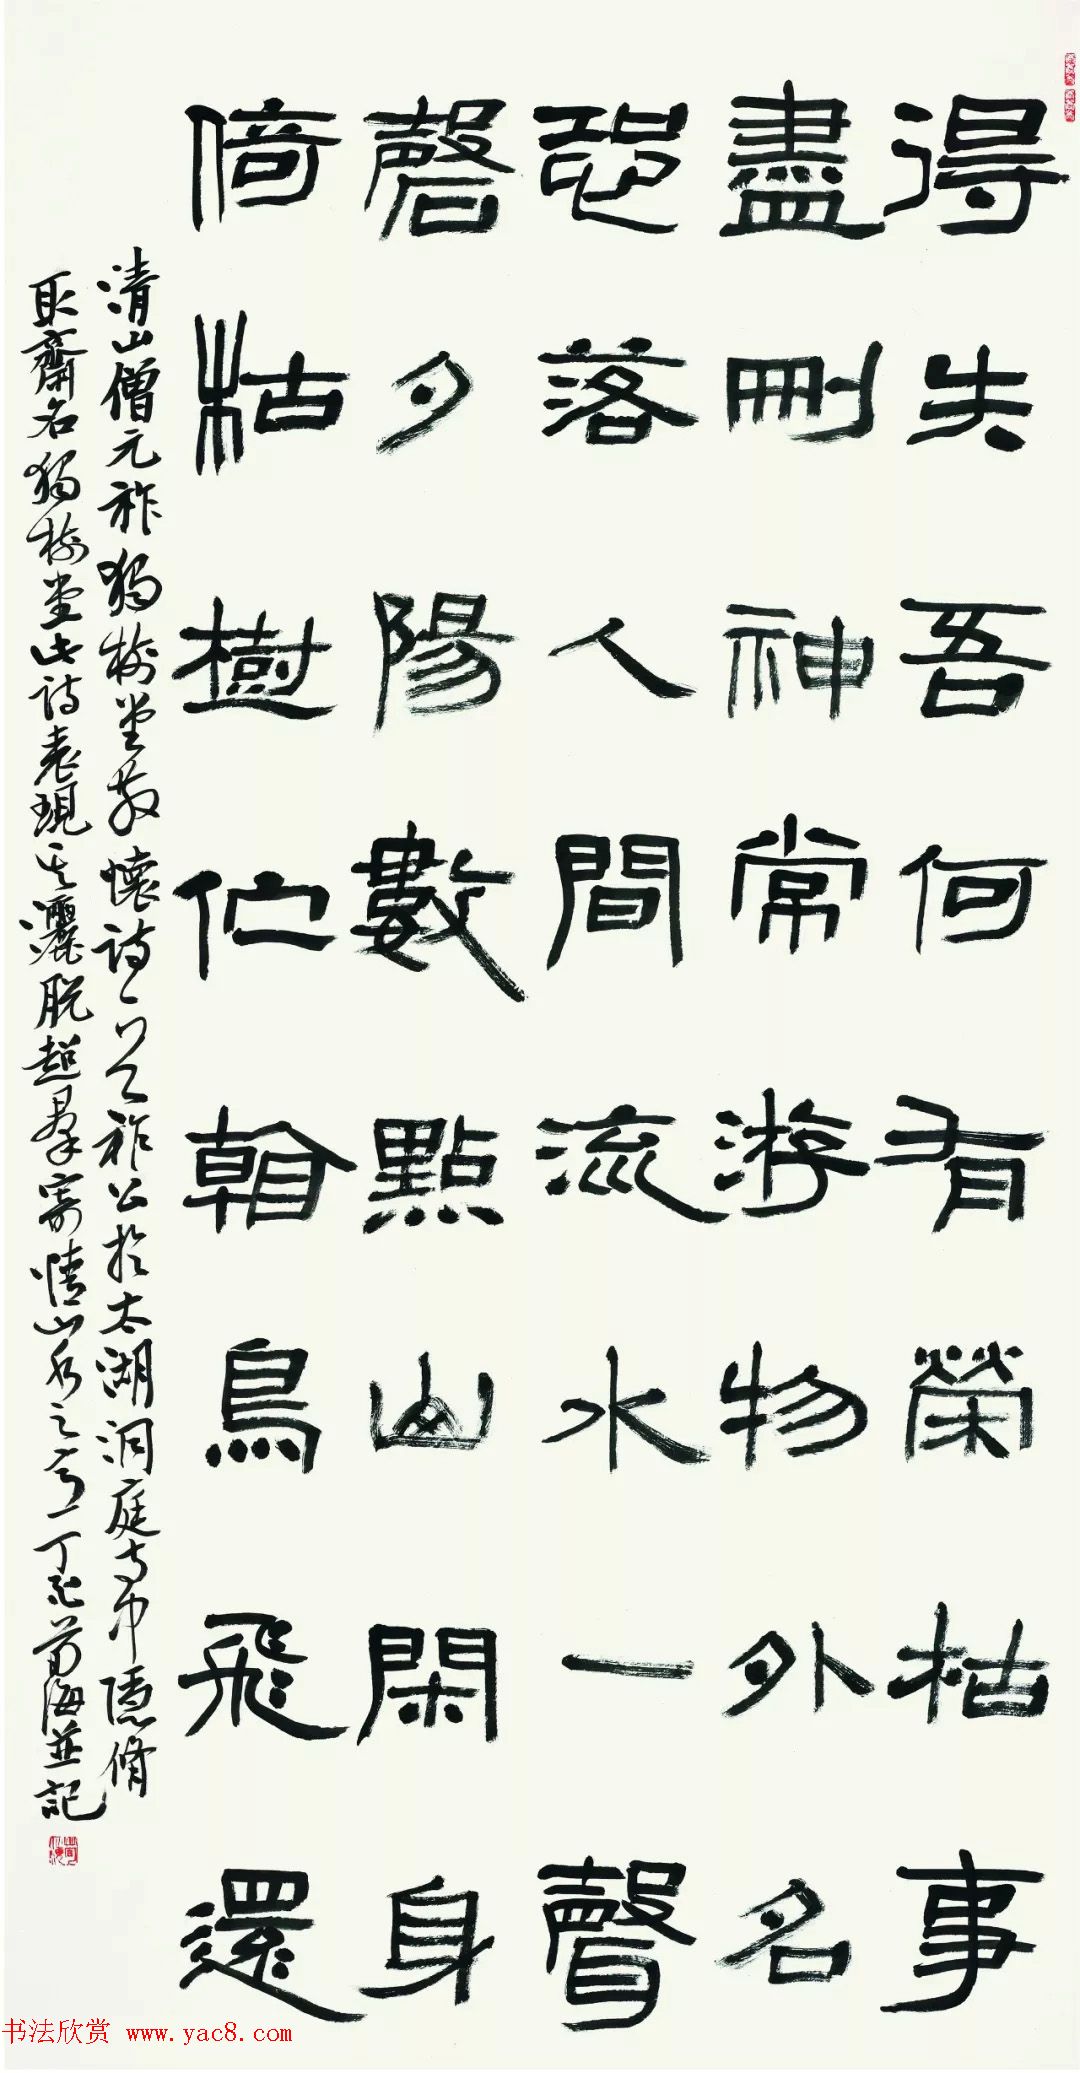 得失吾何有榮枯事
盡刪神常游物外名
恐落人間流水一聲
磬夕陽數點山閑身
倚枯樹伫看鳥飛還
清山僧元祚獨樹堂散懷詩一首祚公於太湖洞庭寺中隱脩
取齋名獨樹堂此詩表現其灑脫超羣寄情山水之
丁 海並記
书法欣赏 www.yac8.com